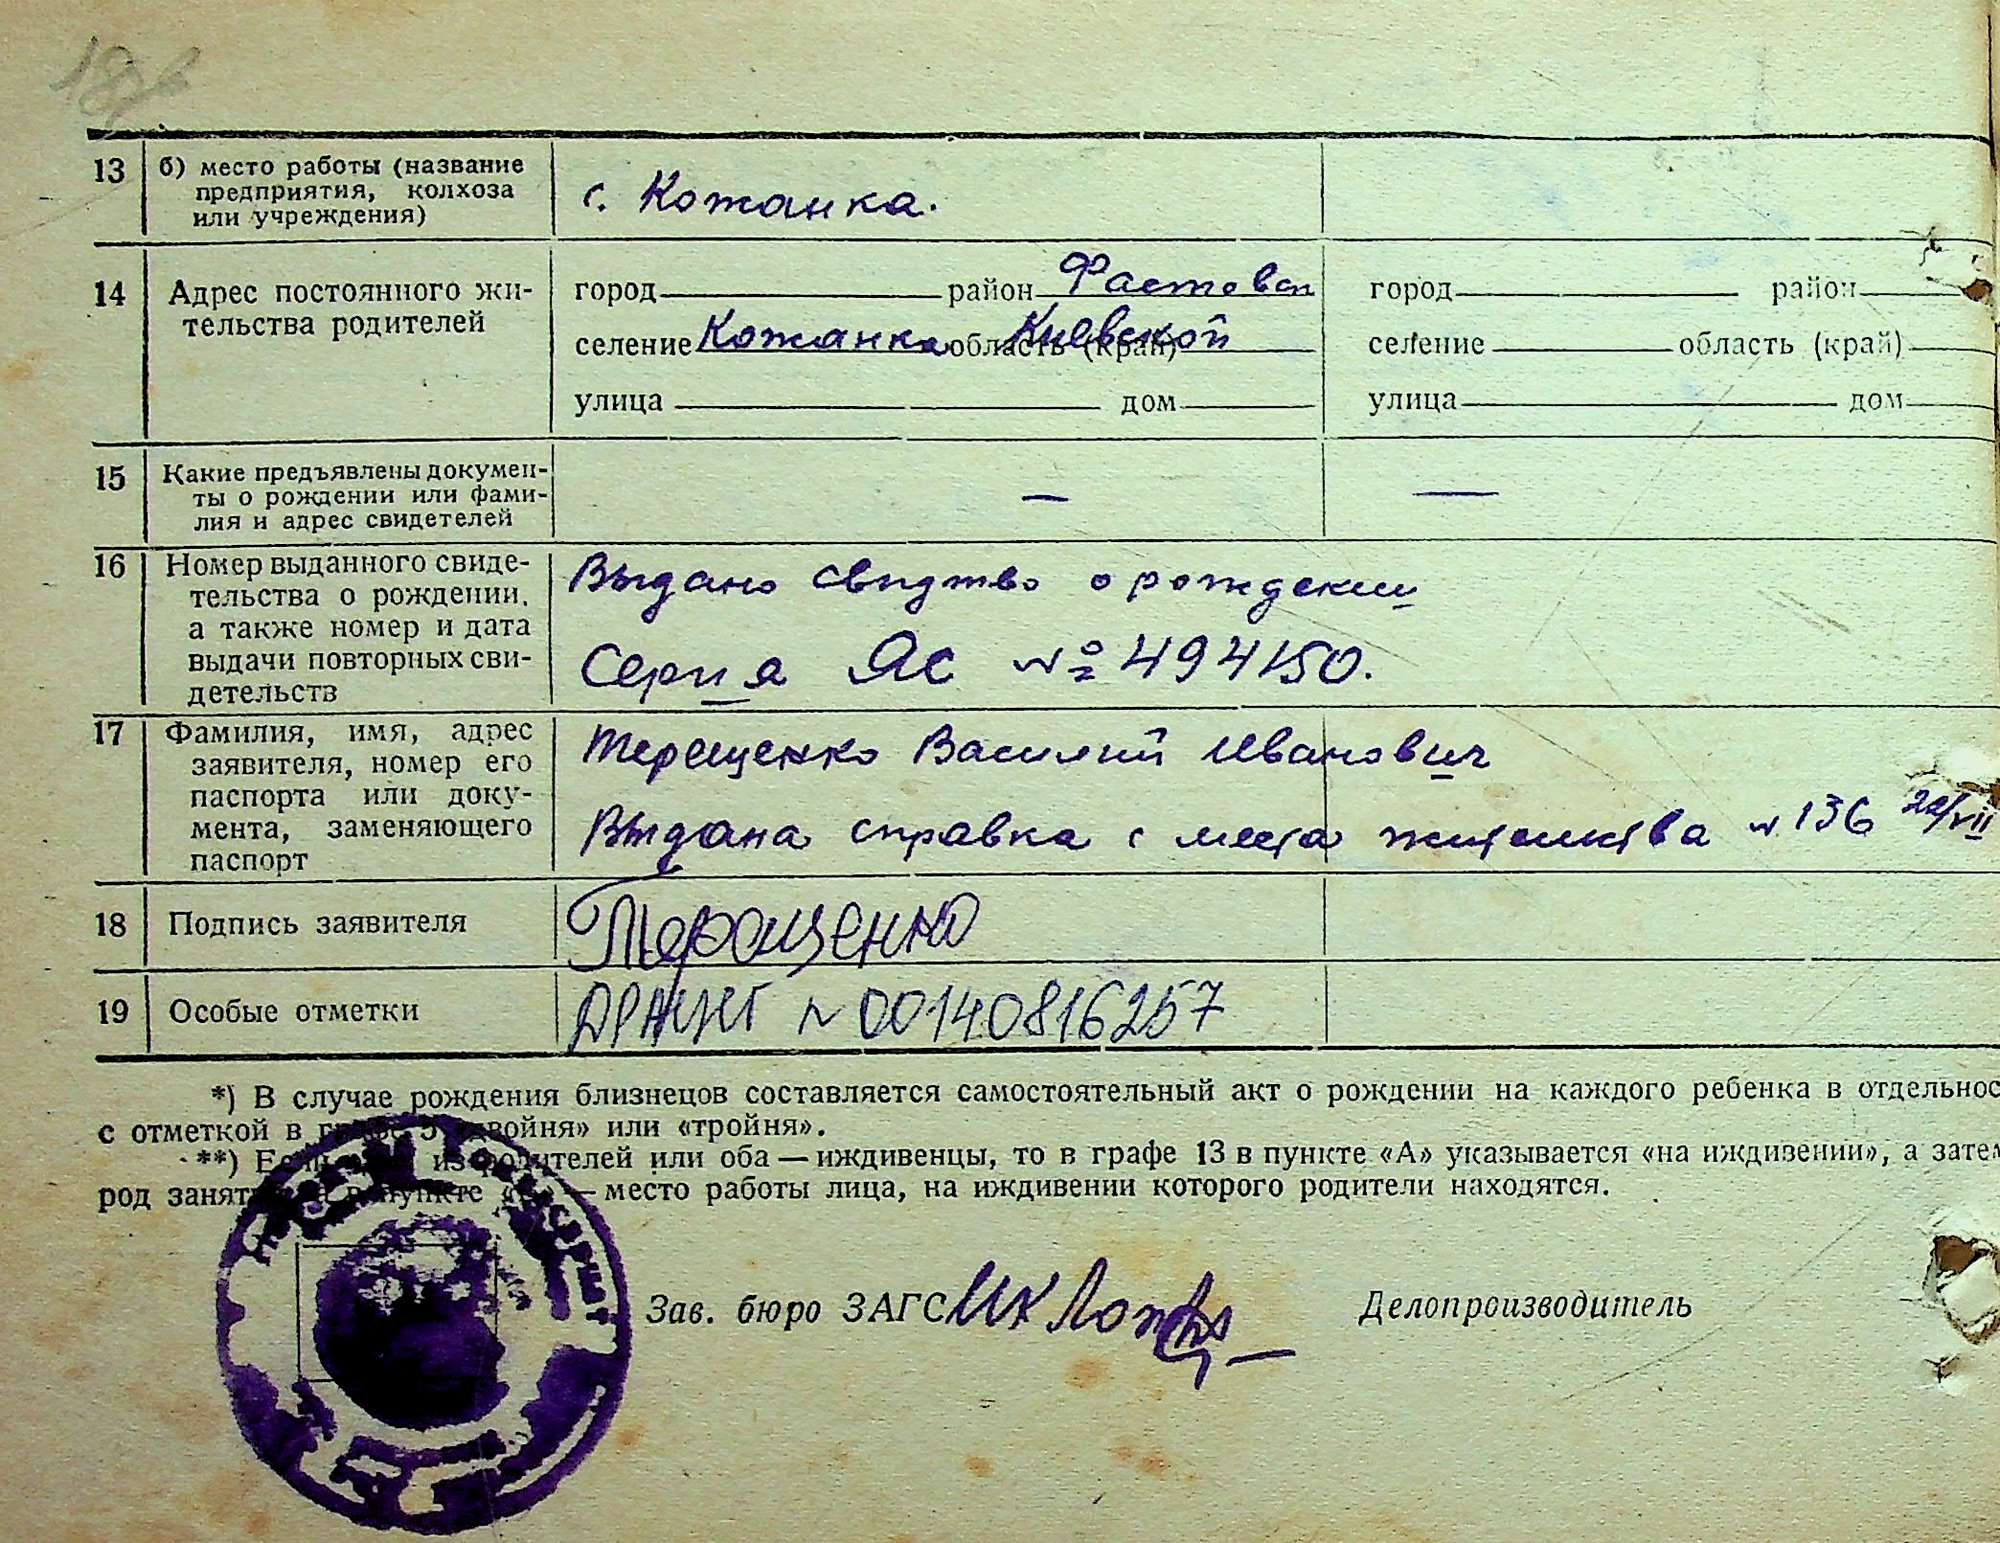 13 б) место работы (название
предприятия, колхоза
или учреждения)
с. Кожанка.
14 Адрес постоянного жи-
тельства родителей
город район Фастовск
селение Кожанка область (край) Киевской
улица дом
город район
селение область (край)
улица дом
15 Какие предъявлены докумен-
ты о рождении или фами-
лия и адрес свидетелей
— —
16 Номер выданного свиде-
тельства о рождении,
а также номер и дата
выдачи повторных сви-
детельств
Выдано свидтво о рождении
Серия ЯС № 494150.
17 Фамилия, имя, адрес
заявителя, номер его
паспорта или доку-
мента, заменяющего
паспорт
Терещенко Василий Иванович
Выдана справка с места жительства N 136 22/VII
18 Подпись заявителя
Терещенко
19 Особые отметки
N 00140816257
*) В случае рождения близнецов составляется самостоятельный акт о рождении на каждого ребенка в отдельнос
с отметкой в графе 5 «двойня» или «тройня».
**) Если один из родителей или оба — иждивенцы, то в графе 13 в пункте «А» указывается «на иждивении», а затем
род занятий, а в пункте — место работы лица, на иждивении которого родители находятся.
Зав. бюро ЗАГС Делопроизводитель